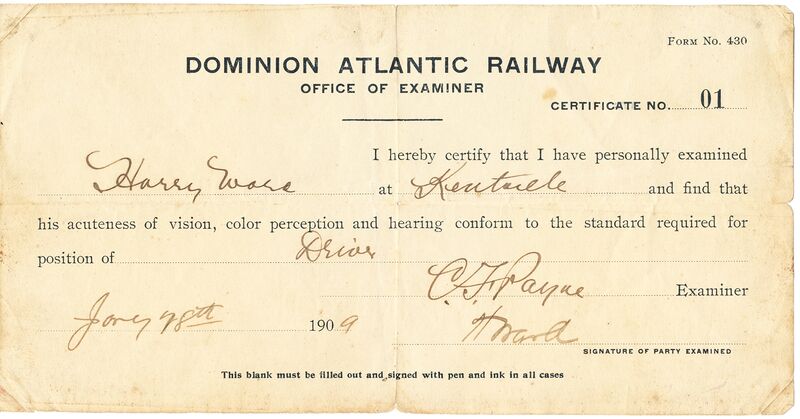 FORM No. 430
DOMINION ATLANTIC RAILWAY
OFFICE OF EXAMINER
CERTIFICATE NO. 01
I hereby certify that I have personally examined
Harry Ward at Kentville and find that
his acuteness of vision, color perception and hearing conform to the standard required for
position of Driver
C. F. Payne Examiner
28th 1909
H Ward
SIGNATURE OF PARTY EXAMINED
This blank must be filled out and signed with pen and ink in all cases